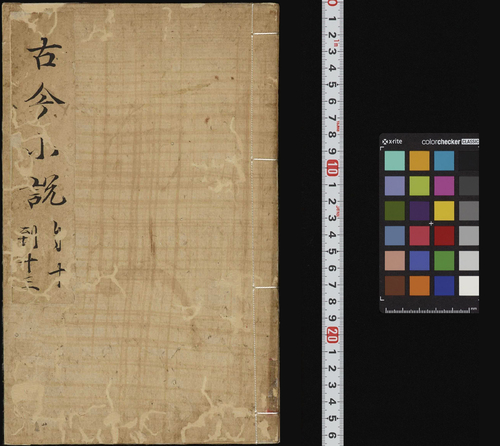 古今小說
自十
到十三
1
2
3
4
5
6
7
8
9
10
1
2
3
4
5
6
7
8
9
20
1
2
3
4
5
6
x-rite
colorchecker CLASSIC
mm